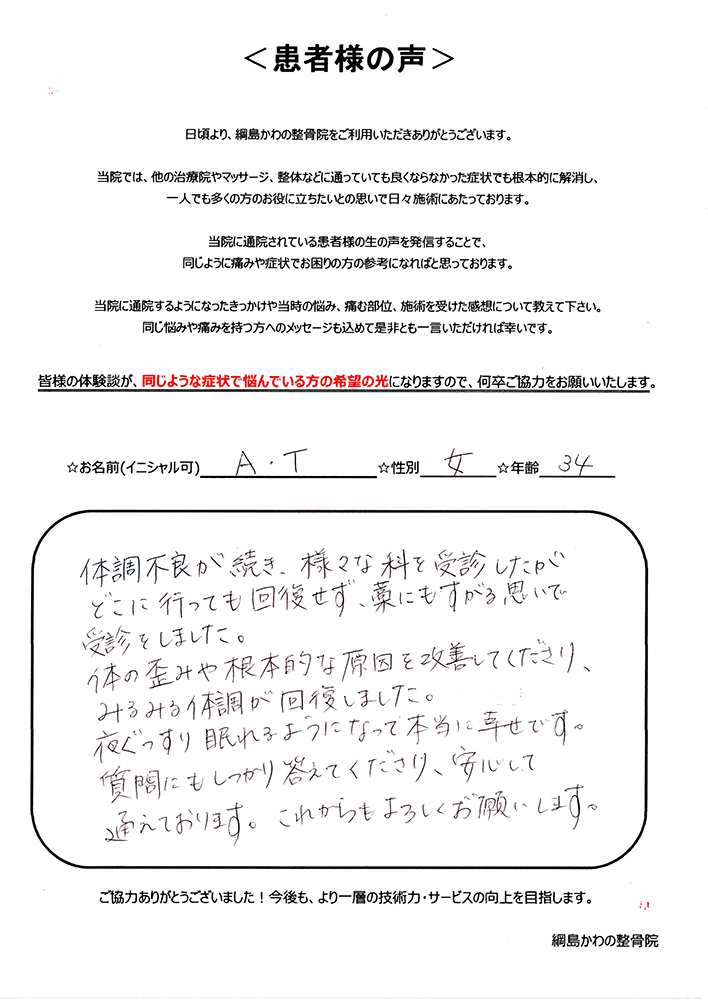 ＜患者様の声＞
日頃より、綱島かわの整骨院をご利用いただきありがとうございます。
当院では、他の治療院やマッサージ、整体などに通っていても良くならなかった症状でも根本的に解消し、
一人でも多くの方のお役に立ちたいとの思いで日々施術にあたっております。
当院に通院されている患者様の生の声を発信することで、
同じように痛みや症状でお困りの方の参考になればと思っております。
当院に通院するようになったきっかけや当時の悩み、痛む部位、施術を受けた感想について教えて下さい。
同じ悩みや痛みを持つ方へのメッセージも込めて是非とも一言いただければ幸いです。
皆様の体験談が、同じような症状で悩んでいる方の希望の光になりますので、何卒ご協力をお願いいたします。
☆お名前(イニシャル可) A・T ☆性別 女 ☆年齢 34
体調不良が続き、様々な科を受診したが
どこに行っても回復せず、藁にもすがる思いで
受診をしました。
体の歪みや根本的な原因を改善してくださり、
みるみる体調が回復しました。
夜ぐっすり眠れるようになって本当に幸せです。
質問にもしっかり答えてくださり、安心して
通えております。これからもよろしくお願いします。
ご協力ありがとうございました！今後も、より一層の技術力・サービスの向上を目指します。
綱島かわの整骨院